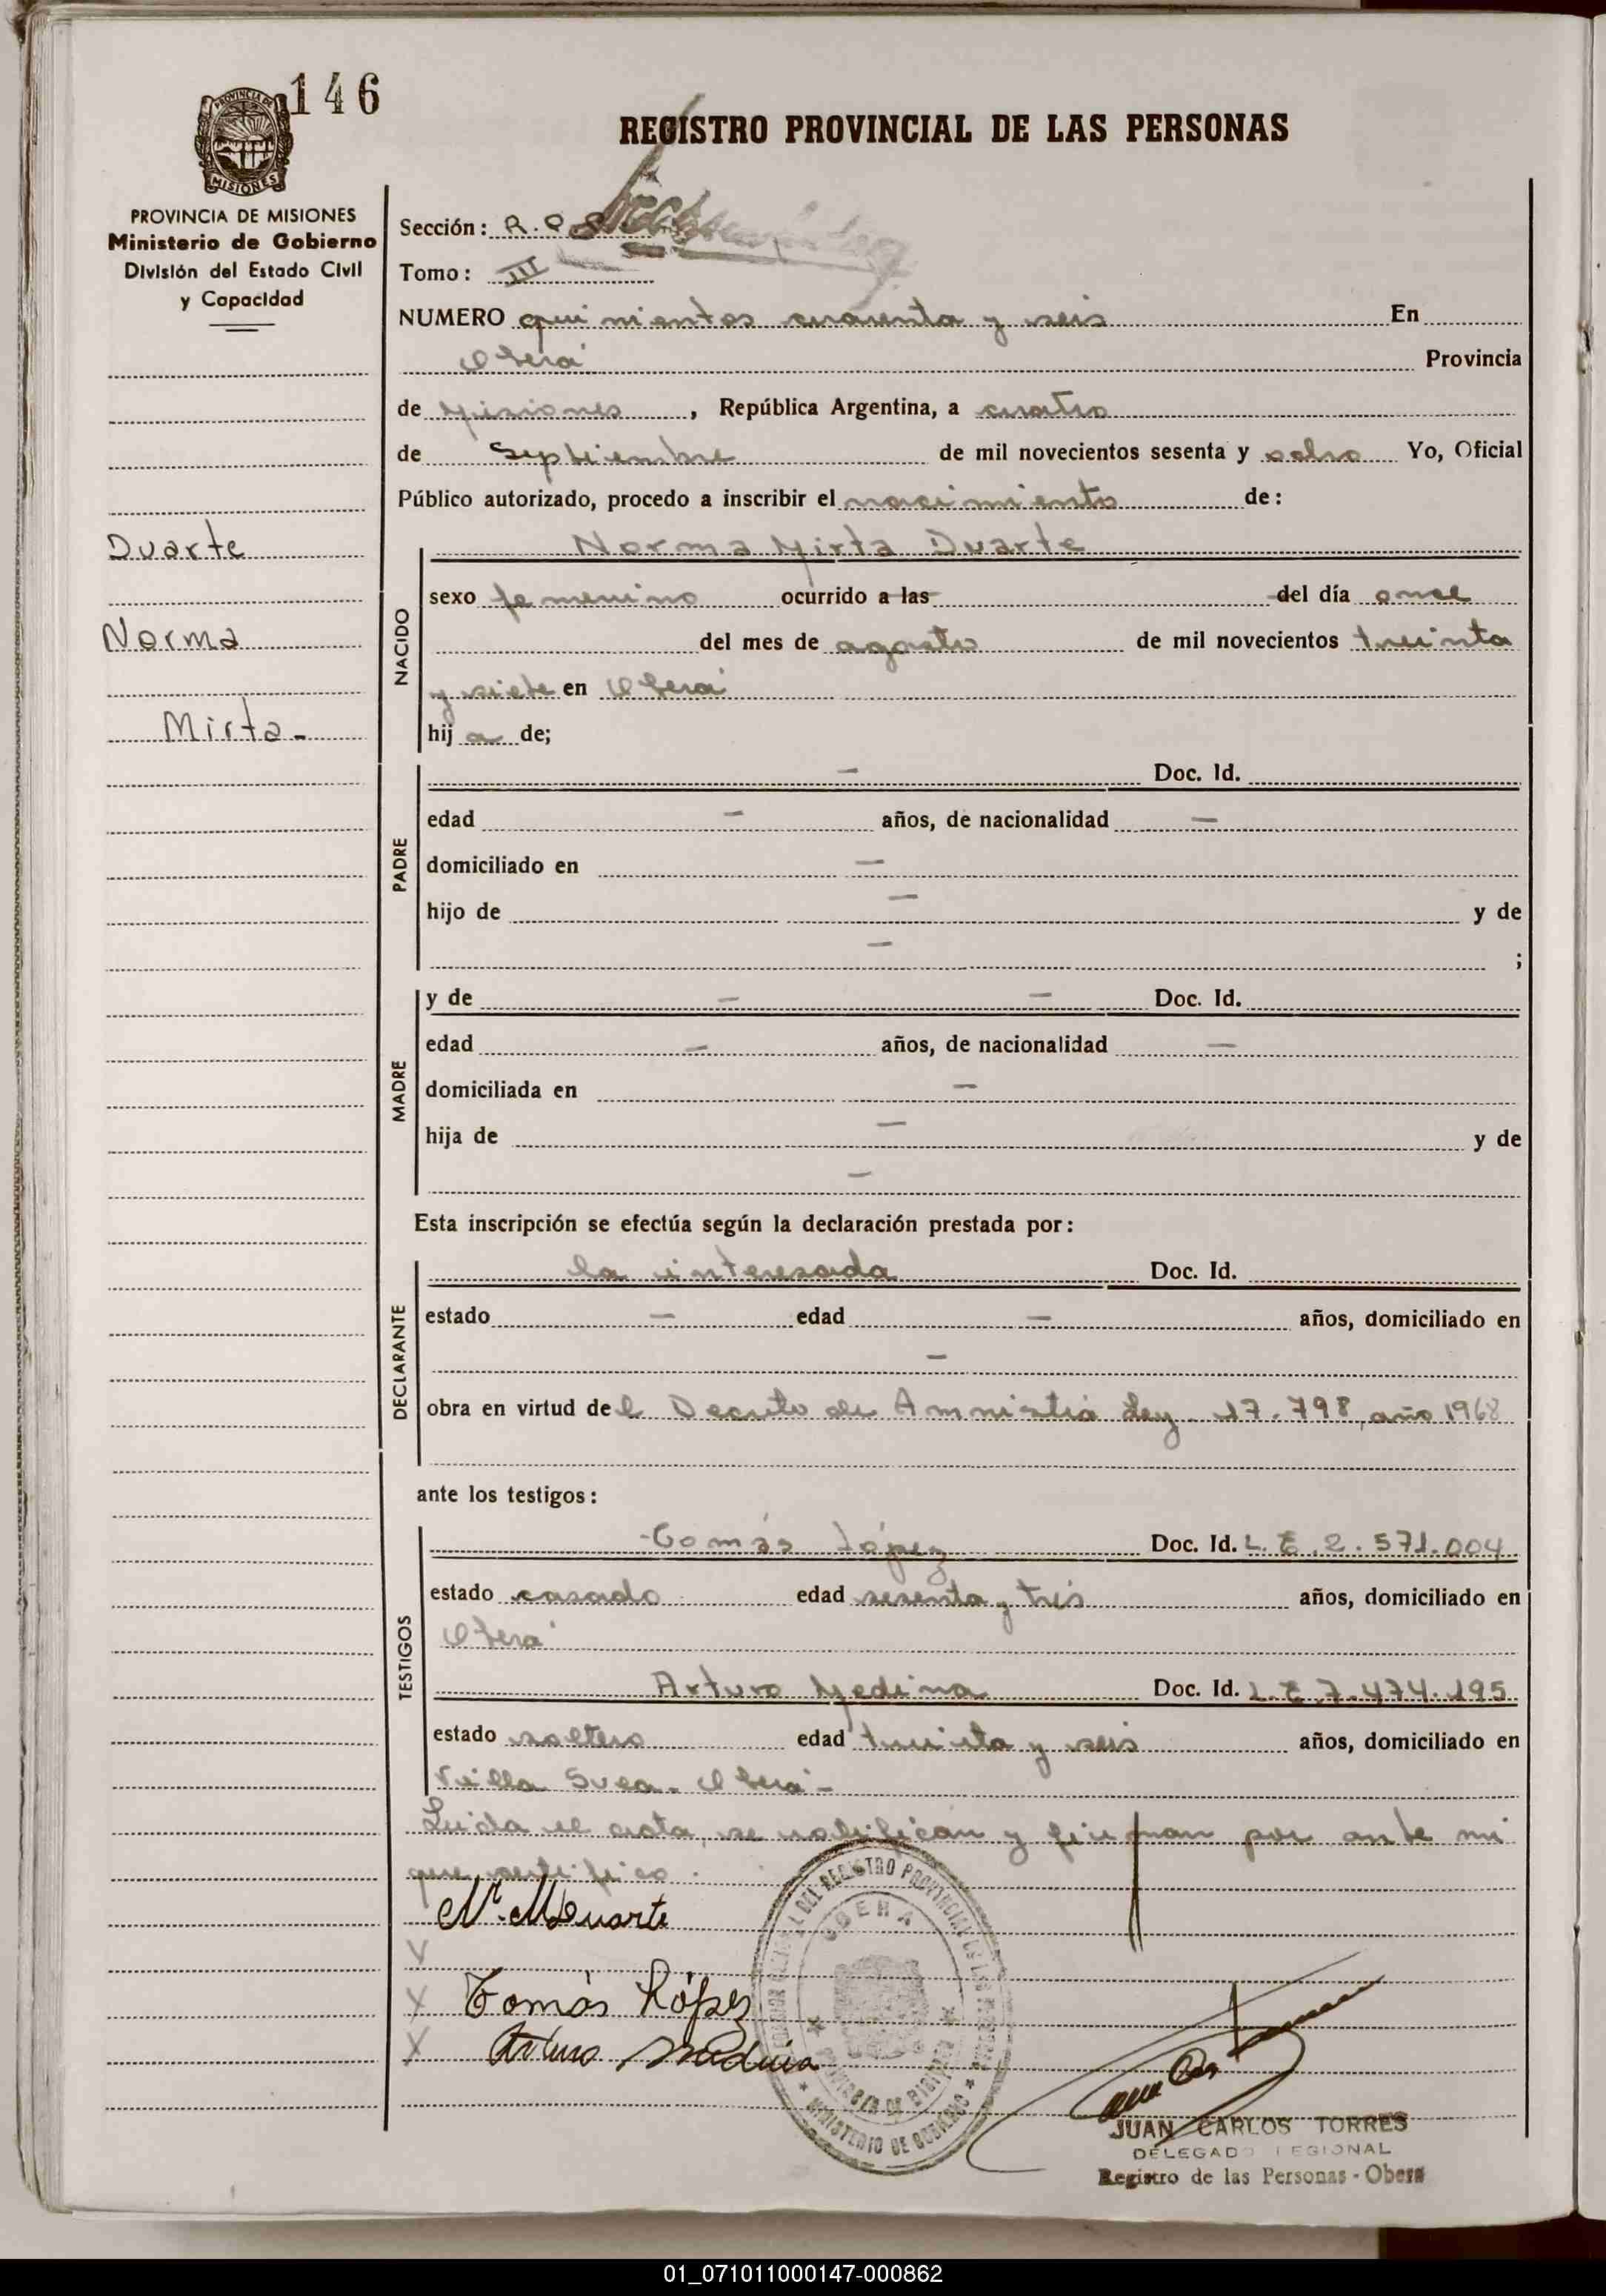 146
REGISTRO PROVINCIAL DE LAS PERSONAS
PROVINCIA DE MISIONES
Ministerio de Gobierno
División del Estado Civil
y Capacidad
Sección: R. P.
Tomo: III
NUMERO quinientos cuarenta y seis En
Oberá Provincia
de Misiones, República Argentina, a cuatro
de Septiembre de mil novecientos sesenta y ocho Yo, Oficial
Público autorizado, procedo a inscribir el nacimiento de:
Duarte
Norma
Mirta-
NACIDO
Norma Mirta Duarte
sexo femenino ocurrido a las del día once
del mes de agosto de mil novecientos treinta
y siete en Oberá
hija de;
PADRE
— Doc. Id.
edad — años, de nacionalidad —
domiciliado en —
hijo de — y de
— ;
MADRE
y de — — Doc. Id.
edad — años, de nacionalidad —
domiciliada en —
hija de — y de
—
Esta inscripción se efectúa según la declaración prestada por:
DECLARANTE
la interesada Doc. Id.
estado — edad — años, domiciliado en
—
obra en virtud del Decreto de Amnistia Ley 17.798, año 1968
ante los testigos:
TESTIGOS
Tomás López Doc. Id. L.E. 2.571.004
estado casado edad sesenta y tres años, domiciliado en
Oberá
Arturo Medina Doc. Id. L.E. 7.474.195
estado soltero edad treinta y seis años, domiciliado en
Villa Svea. Oberá-
Leida el acta, se ratifican y firman por ante mi
que certifico.
N. M Duarte
X
X Tomás López
X Arturo Medina
DEL REGISTRO PROVINCIAL DE LAS PERSONAS
OBERA
MINISTERIO DE GOBIERNO
JUAN CARLOS TORRES
DELEGADO REGIONAL
Registro de las Personas - Oberá
01_071011000147-000862